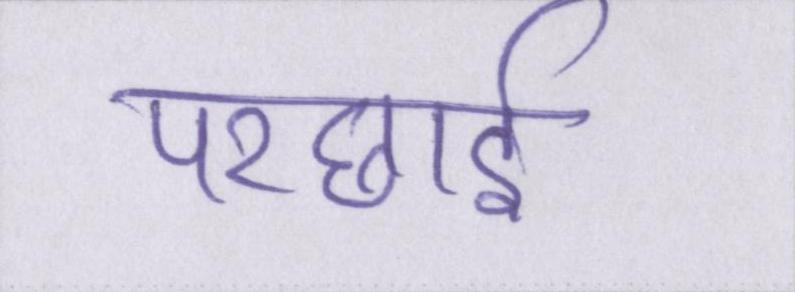 परछाई